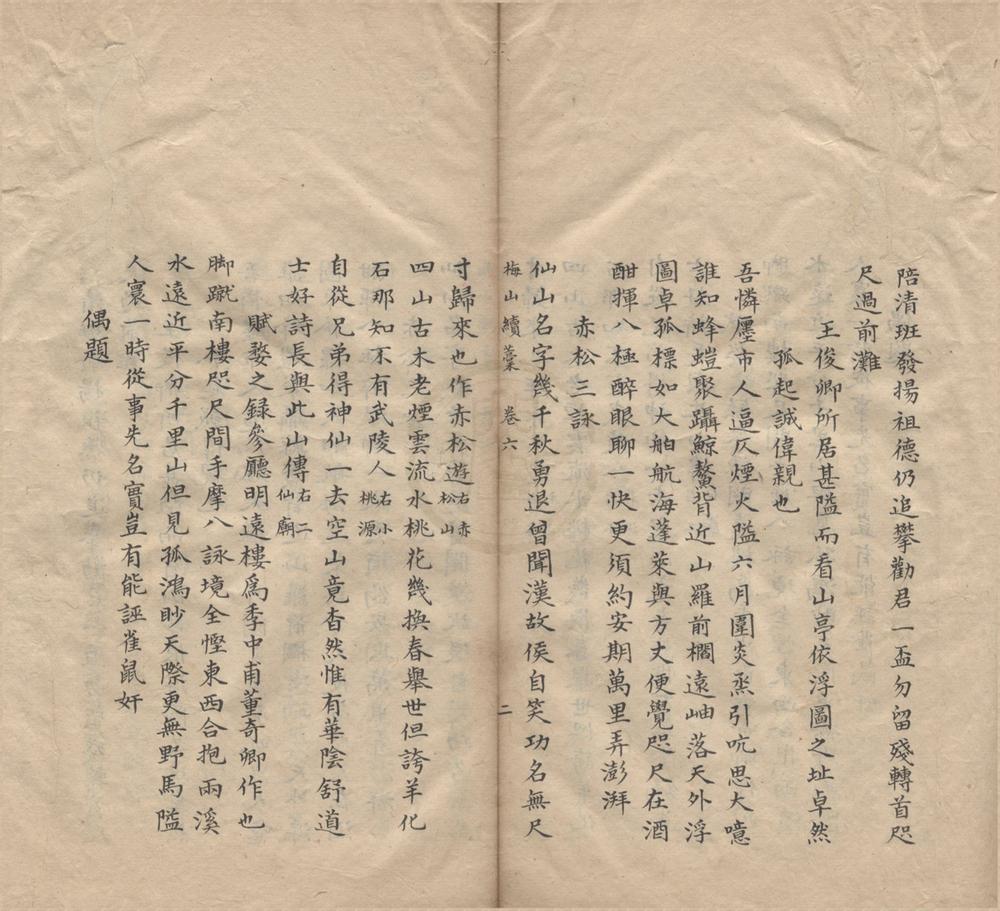 陪清班發揚祖德仍追攀勸君一盃勿留殘轉首咫
尺過前灘
王俊卿所居甚隘而看山亭依浮圖之址卓然
孤起誠偉親也
吾憐廛市人逼仄煙火隘六月圍炎烝引吭思大噫
誰知蜂螘聚躡鯨鰲背近山羅前櫩遠岫落天外浮
圖卓孤標如大舶航海蓬萊與方丈便覺咫尺在酒
酣揮八極醉眼聊一快更須約安期萬里弄澎湃
赤松三詠
仙山名字幾千秋勇退曾聞漢故侯自笑功名無尺
梅山續藁 卷六 二
寸歸來也作赤松遊右赤松山
四山古木老煙雲流水桃花幾換春舉世但誇羊化
石那知不有武陵人右小桃源
自從兄弟得神仙一去空山竟杳然惟有華陰舒道
士好詩長與此山傳右二仙廟
賦婺之録參廳明遠樓爲季中甫董奇卿作也
脚蹴南樓咫尺間手摩八詠境全慳東西合抱兩溪
水遠近平分千里山但見孤鴻眇天際更無野馬隘
人寰一時從事先名實豈有能誣雀鼠奸
偶題